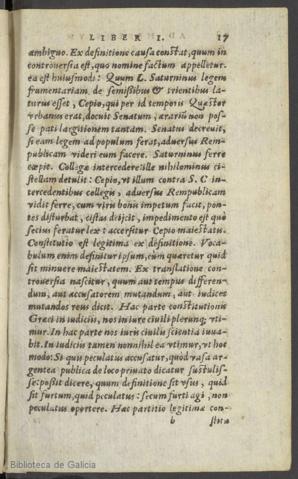 LIBER I. 17
ambiguo. Ex definitione causa constat, quum in
controversia est, quo nomine factum appelletur.
ea est huiusmodi: Quum L. Saturninus legem
frumentariam de semissibus & trientibus la-
turus esset, Cepio, qui per id temporis Quæstor
vrbanus erat, docuit Senatum, ærariũ non pos-
se pati largitionem tantam. Senatus decreuit,
si eam legem ad populum ferat, aduersus Rem-
publicam videri eum facere. Saturninus ferre
cœpit. Collegæ intercedere: ille nihilominus ci-
stellam detulit: Cepio, vt illum contra S. C in-
tercedentibus collegis, aduersus Rempublicam
vidit ferre, cum viris bonis impetum facit, pon-
tes disturbat, cistas deijcit, impedimento est quò
secius feratur lex: accersitur Cepio maiestatis.
Constitutio est legitima ex definitione. Voca-
bulum enim definitur ipsum, cùm quæretur quid
sit minuere maiestatem. Ex translatione con-
trouersia nascitur, quum aut tempus differen-
dum, aut accusatorem mutandum, aut iudices
mutandos reus dicit. Hac parte constitutionis
Græci in iudicijs, nos in iure ciuili plerunq; vti-
mur. In hac parte nos iuris ciuilis scientia iuua-
bit. In iudicijs tamen nonnihil ea vtimur, vt hoc
modo: Si quis peculatus accusatur, quòd vasa ar-
gentea publica de loco priuato dicatur sustulis-
se: possit dicere, quum definitione sit vsus, quid
sit furtum, quid peculatus: secum furti agi, non
peculatus oportere. Hæc partitio legitimæ con-
b stitu
Biblioteca de Galicia